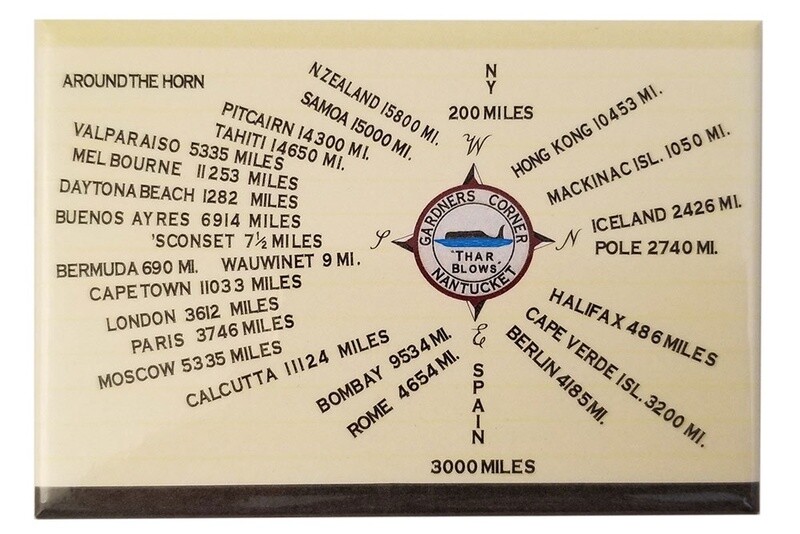 AROUND THE HORN
N.ZEALAND 15800 MI.
SAMOA 15000 MI.
PITCAIRN 14300 MI.
TAHITI 14650 MI.
VALPARAISO 5335 MILES
MELBOURNE 11253 MILES
DAYTONA BEACH 1282 MILES
BUENOS AYRES 6914 MILES
'SCONSET 7½ MILES
BERMUDA 690 MI. WAUWINET 9 MI.
CAPETOWN 11033 MILES
LONDON 3612 MILES
PARIS 3746 MILES
MOSCOW 5335 MILES
CALCUTTA 11124 MILES
BOMBAY 9534 MI.
ROME 4654 MI.
NY
200 MILES
W
S
GARDNERS CORNER
"THAR
BLOWS"
NANTUCKET
N
E
SPAIN
3000 MILES
HONG KONG 10453 MI.
MACKINAC ISL. 1050 MI.
ICELAND 2426 MI.
POLE 2740 MI.
HALIFAX 486 MILES
CAPE VERDE ISL. 3200 MI.
BERLIN 4185 MI.